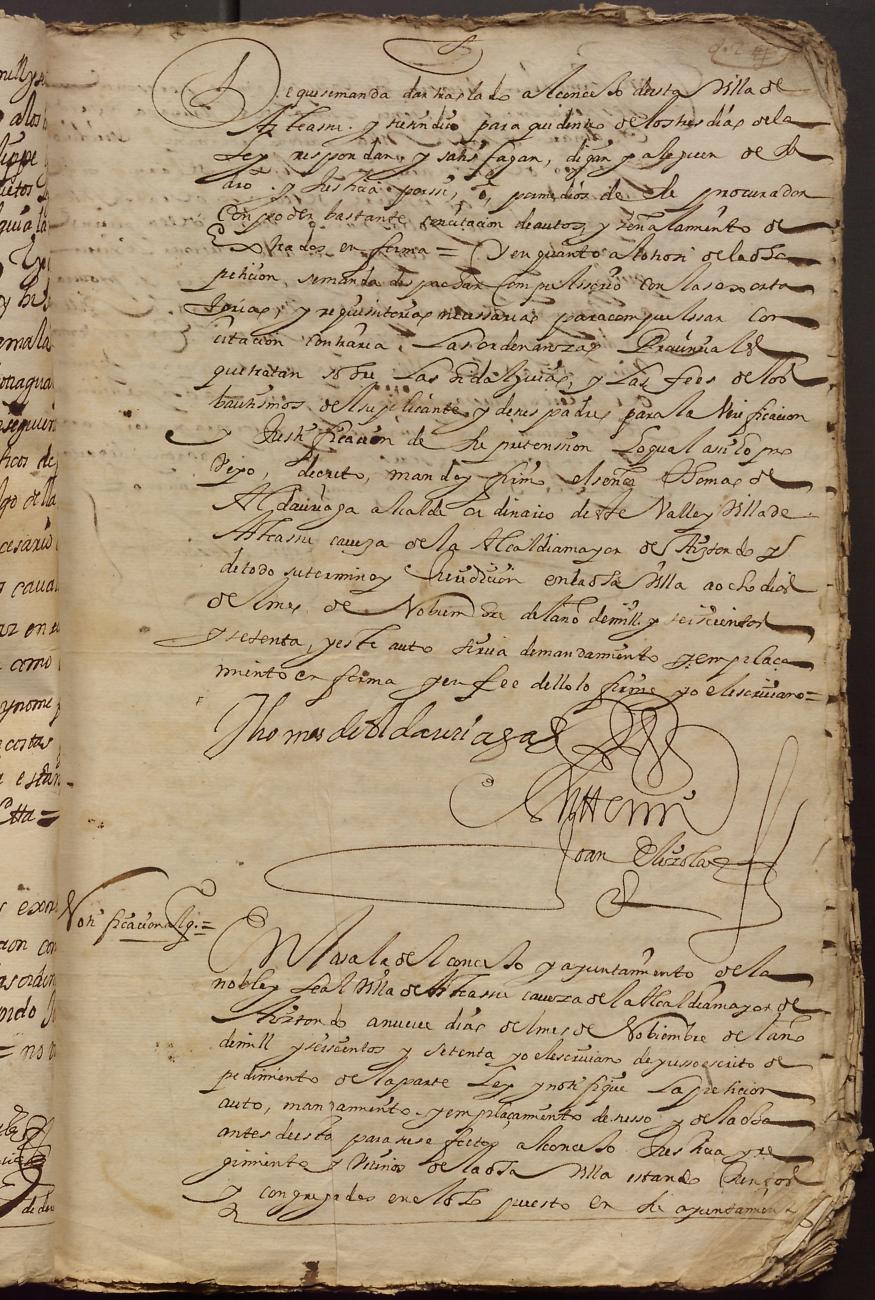 De que se manda dar traslado al concexo desta Villa de
Azteasu. y su sindico para que dentro de los tres dias de la
Ley respondan, y satisfagan, digan y aleguen de su
dro. y Justicia por si, o, por medio de su procurador
Con poder bastante con citacion de autos, y señalamiento de
Extrados en forma = Y en quanto al otrosi de la dha
peticion, se manda despachar Compulsorio con las exorta
torias, y requisitorias necessarias para compulssar con
citacion contraria, Las ordenanzas Provinciales
que tratan sobre Las hidalguias, y Las fees de los
bautismos del suplicante, y de sus padres para la Verificacion
y Justificacion de su pretension Lo qual asi lo pro
veyo, decreto, mando y firmo el señor Thomas de
Aldauriaga alcalde ordinario deste Valle y Villa de
Azteasu caveza de la Alcaldia mayor de Aiztondo y
de todo su termino y Jurisdicion en la dha Villa a ocho dias
del mes de Nobiembre del año de mill y seiscientos
y setenta, y este auto sirva de mandamiento y emplaça
miento en forma y en fee dello lo firme yo el escrivano =
Thomas de Aldauriaga
Ante mi
Joan de Elizola
Notificacion =
En la sala del concexo y ayuntamiento de la
noble y Leal Villa de Azteasu caveza de la Alcaldia mayor de
Aiztondo a nueve dias del mes de Nobiembre del año
de mill y seiscientos y setenta yo el escrivano de yusso escrito de
pedimiento de la parte Ley y notifique La peticion
auto, mandamiento y emplaçamiento de suso, y de la oja
antes desta para sus efectos al concexo Justicia y re
gimiento y Vecinos de la dha Villa estando Juntos
y congregados en el dho puesto en su ayuntamiento